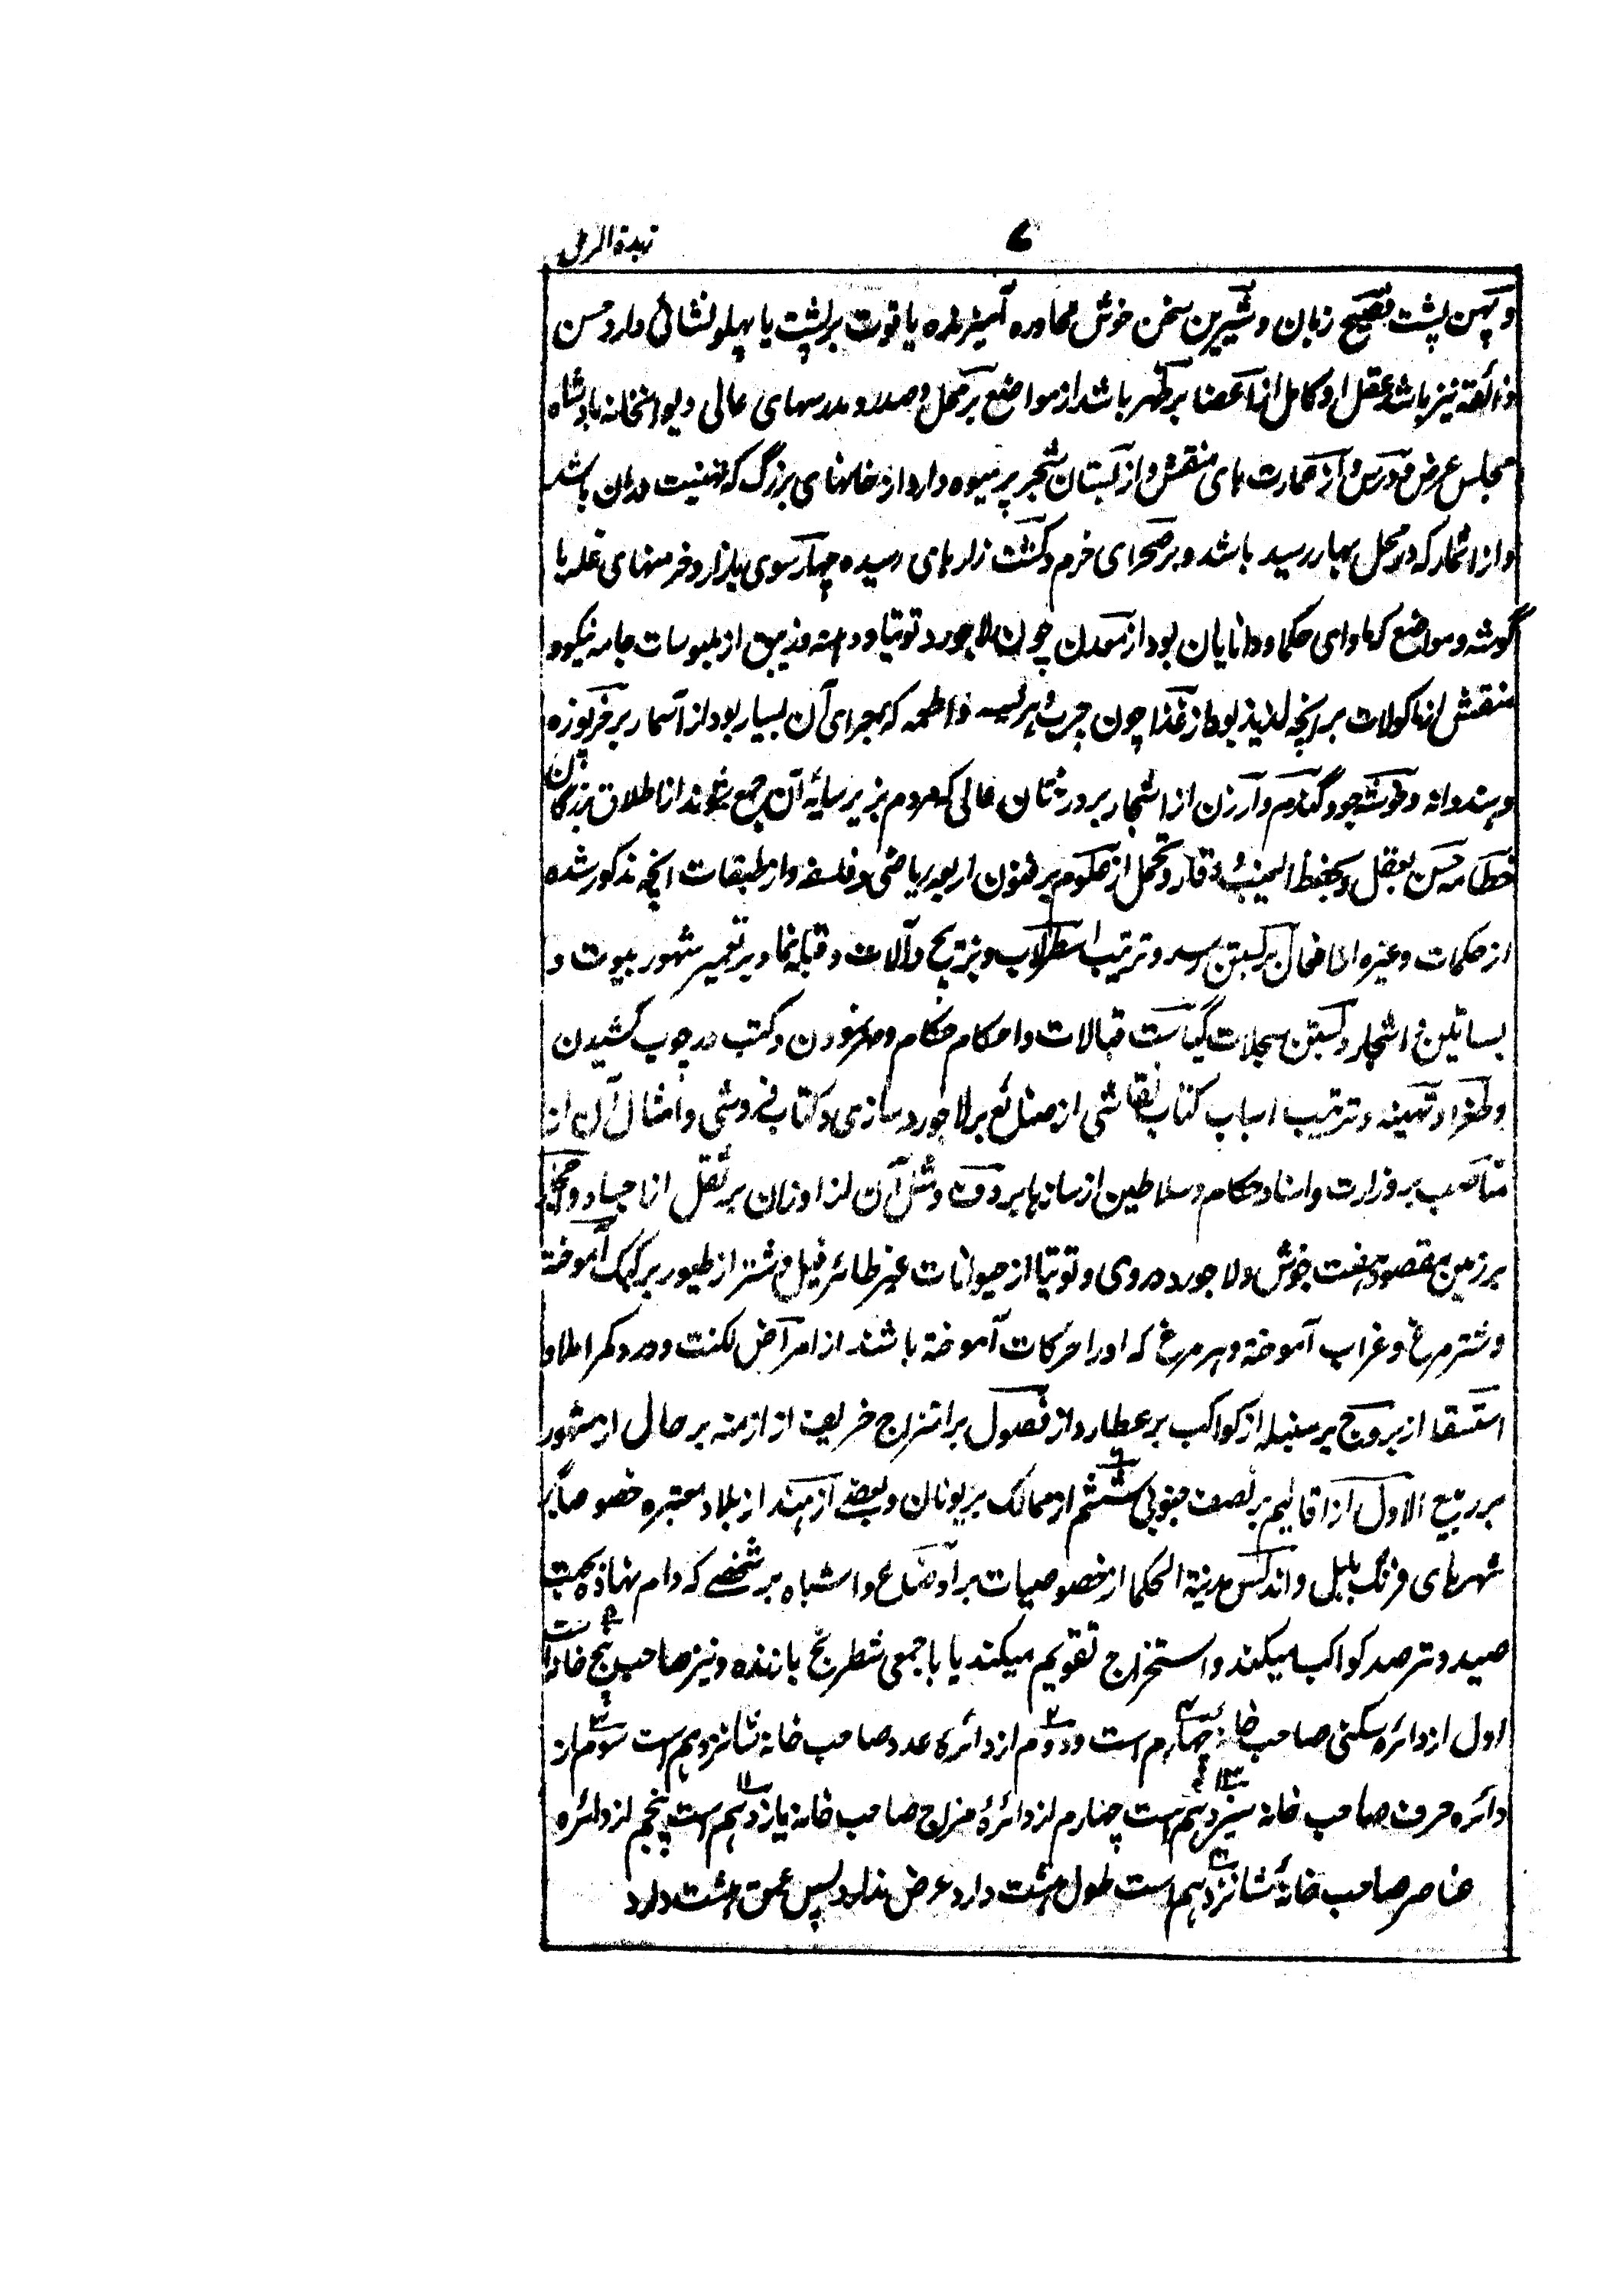 زبدة الرمل
و پهن پشت فصیح زبان و شیرین سخن خوش محاوره آمیزنده با قوت بر پشت یا پهلو نشانی دارد حسن
ذائقه نیز باشد عقل او کامل از اعضا بر ظهر باشد از مواضع بر محل و صدر و مدرسهای عالی و دیوانخانه بادشاه
مجلس عرض و درس و از عمارت های منقش و از بستان شجر پر میوه دارد از خانهای بزرگ که تهنیت دران باشد
و از اثمار که در محل بهار رسید باشد و بر صحرای خرم و کشت زارهای رسیده چهار سوی بازار و خرمنهای غله با
گوشه و مواضع که ماوای حکما و دانایان بود از معدن چون لاجورد توتیا و دهنه و زیبق از ملبوسات جامه نیکو و
منقش از ماکولات بر انچه لذیذ بود از غذا چون چرب و هریسه و اطعمه که مجرای آن بسیار بود از اثمار بر خربوزه
و هندوانه و خوشه جو و گندم و ارزن از اشجار بر درختان عالی که مردم بزیر سایه آن جمع شوند از اطلاق بزرگان
خطا مه حسن بعقل و بحفظ وقار و تحمل از علوم بر فنون اربعه ریاضی و فلسفه و از طبقات انچه مذکور شده
از حکمات و غیره از افعال بر بستن رصد و ترتیب اسطرلاب و زیج و آلات و قبله نما و بر تعمیر شهور بیوت و
بساتین اشجار و بستن سجلات قبالات و احکام حکام و مهر نمودن و کتب در چوب کشیدن
و طغرا و تهینه و ترتیب اسباب کتاب نقاشی از صنائع بر لاجورد سازی و کتاب فروشی و امثال آن از
مناصب بر وزارت و اسناد حکام و سلاطین از سازها بر دف و مثل آن از اوزان بر ثقل از اجساد و
بر زمین مقصود هفت جوش و لاجورد و روی و توتیا از حیوانات غیر طائر فیل و شتر از طیور بر کبک آموخته
و شتر مرغ و غراب آموخته و هر مرغ که او را حرکات آموخته باشند از امراض لکنت و درد کمر
استسقا از بروج بر سنبله از کواکب بر عطارد از فصول بر امتزاج خریف از ازمنه بر حال از شهور
بر ربیع الاول از اقالیم بر نصف جنوبی ششم از ممالک بر یونان و بعضے از هند از بلاد معتبره خصوصاً بر
شهرهای فرنگ بابل و اندلس مدینة الحکما از خصوصیات بر اوضاع و اشباه بر شخصے که دام نهاده بجهت
صید و ترصد کواکب میکند و استخراج تقویم میکند یا با جمعی شطرنج بازنده و نیز صاحب پنج خانه است
اول از دائره سکنی صاحب خانه چهارم است و دوم از دائره عدد صاحب خانه شانزدهم است سوم از
دائره حروف صاحب خانه سیزدهم است چهارم از دائرهٔ مزاج صاحب خانه یازدهم است پنجم از دائره
عناصر صاحب خانهٔ شانزدهم است طول هشت دارد عرض ندارد پس عمق هشت دارد